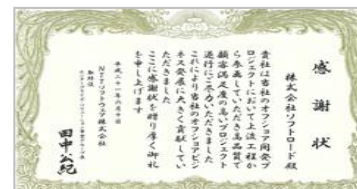 感謝状
株式会社ソフトロード殿
貴社は当社のオフショア開発プ
ロジェクトにおいて上流工程か
ら参画していただき高品質で
顧客満足度の高いプロジェクト
遂行にご尽力いただきました
これにより当社のオフショアビジ
ネス発展に大きく貢献してい
ただきました
ここに感謝状を贈り厚く御礼
を申し上げます
平成二十一年六月十日
NTTソフトウェア株式会社
取締役
田中公紀